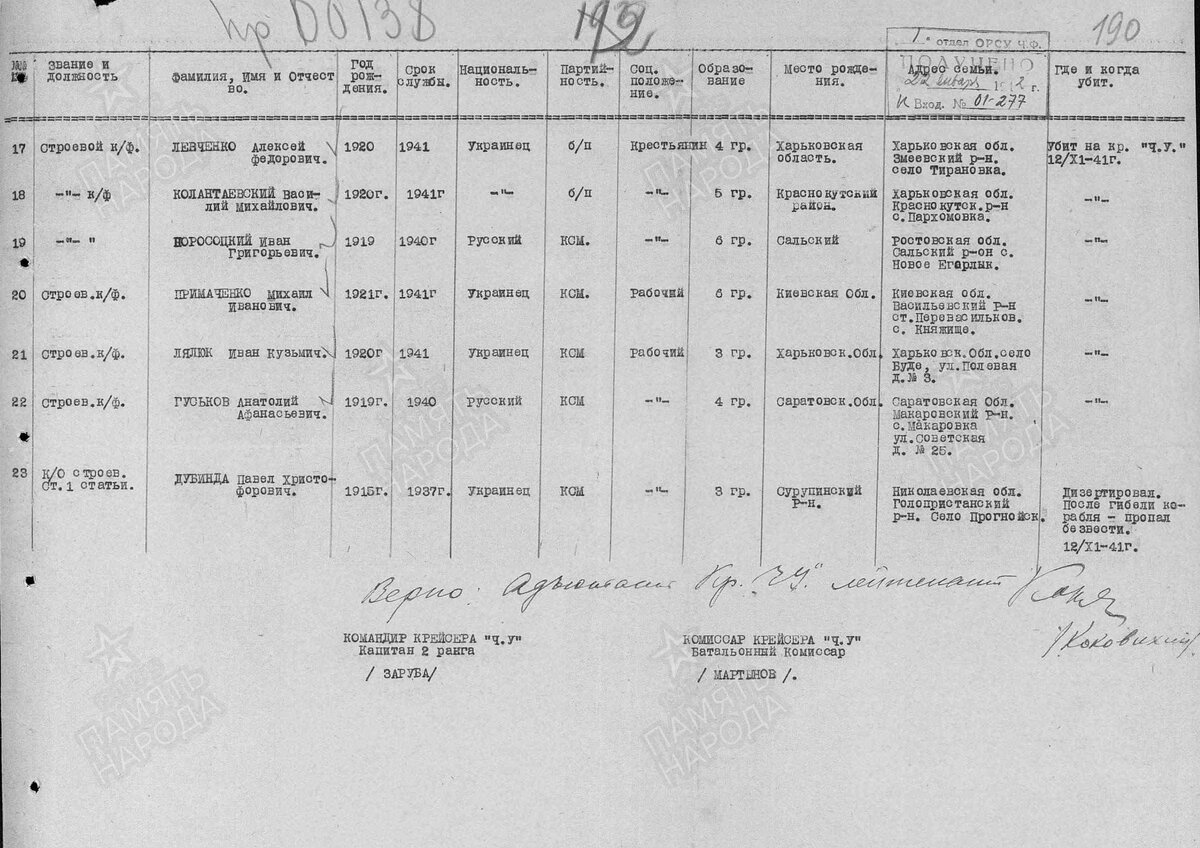 пр 00138
192
190
1й отдел ОРСУ Ч.Ф.
ПОЛУЧЕНО
22 января 1942 г.
К Вход. № 01-277
№№ Звание и должность Фамилия, Имя и Отчество. Год рождения. Срок службы. Националь-ность. Партий-ность. Соц. положе-ние. Образо-вание Место рожде-ния. Адрес семьи. Где и когда убит.
17 Строевой к/ф. ЛЕВЧЕНКО Алексей 1920 1941 Украинец б/п Крестьянин 4 гр. Харьковская Харьковская обл. Убит на кр. "Ч.У."
Федорович. область. Змеевский р-н. 12/X1-41г.
село Тирановка.
18 -"- к/ф КОЛАНТАЕВСКИЙ Васи- 1920г. 1941г -"- б/п -"- 5 гр. Краснокутский Харьковская обл. -"-
лий Михайлович. район. Краснокутск.р-н
с.Пархомовка.
19 -"- " ПОРОСОЦКИЙ Иван 1919 1940г Русский КСМ. -"- 6 гр. Сальский Ростовская обл. -"-
Григорьевич. Сальский р-он с.
Новое Егорлык.
20 Строев.к/ф. ПРИМАЧЕНКО Михаил 1921г. 1941г Украинец КСМ. Рабочий 6 гр. Киевская Обл. Киевская обл. -"-
Иванович. Васильевский р-н
ст.Перевасильков.
с. Княжище.
21 Строев.к/ф. ЛЯЛЮК Иван Кузьмич. 1920г 1941 Украинец КСМ Рабочий 3 гр. Харьковск.Обл. Харьковск.Обл.село -"-
Буде, ул.Полевая
д.№ 3.
22 Строев.к/ф. ГУСЬКОВ Анатолий 1919г. 1940 Русский КСМ -"- 4 гр. Саратовск.Обл. Саратовская Обл. -"-
Афанасьевич. Макаровский р-н.
с.Макаровка
ул.Советская
д. № 25.
23 К/О строев. ДУБИНДА Павел Христо-
Ст.1 статьи. форович. 1915г. 1937г. Украинец КСМ -"- 3 гр. Сурупинский Николаевская обл. Дизертировал.
Р-н. Голопристанский После гибели ко-
р-н. Село Прогнойск. рабля - пропал
безвести.
12/X1-41г.
Верно: Адъютант Кр. "ЧУ" лейтенант
/Коковихин/.
КОМАНДИР КРЕЙСЕРА "Ч.У" КОМИССАР КРЕЙСЕРА "Ч.У"
Капитан 2 ранга Батальонный Комиссар
/ ЗАРУБА/ / МАРТЫНОВ /.
ПАМЯТЬ НАРОДА
ПАМЯТЬ НАРОДА
ПАМЯТЬ НАРОДА
ПАМЯТЬ НАРОДА
ПАМЯТЬ НАРОДА
ПАМЯТЬ НАРОДА
ПАМЯТЬ НАРОДА